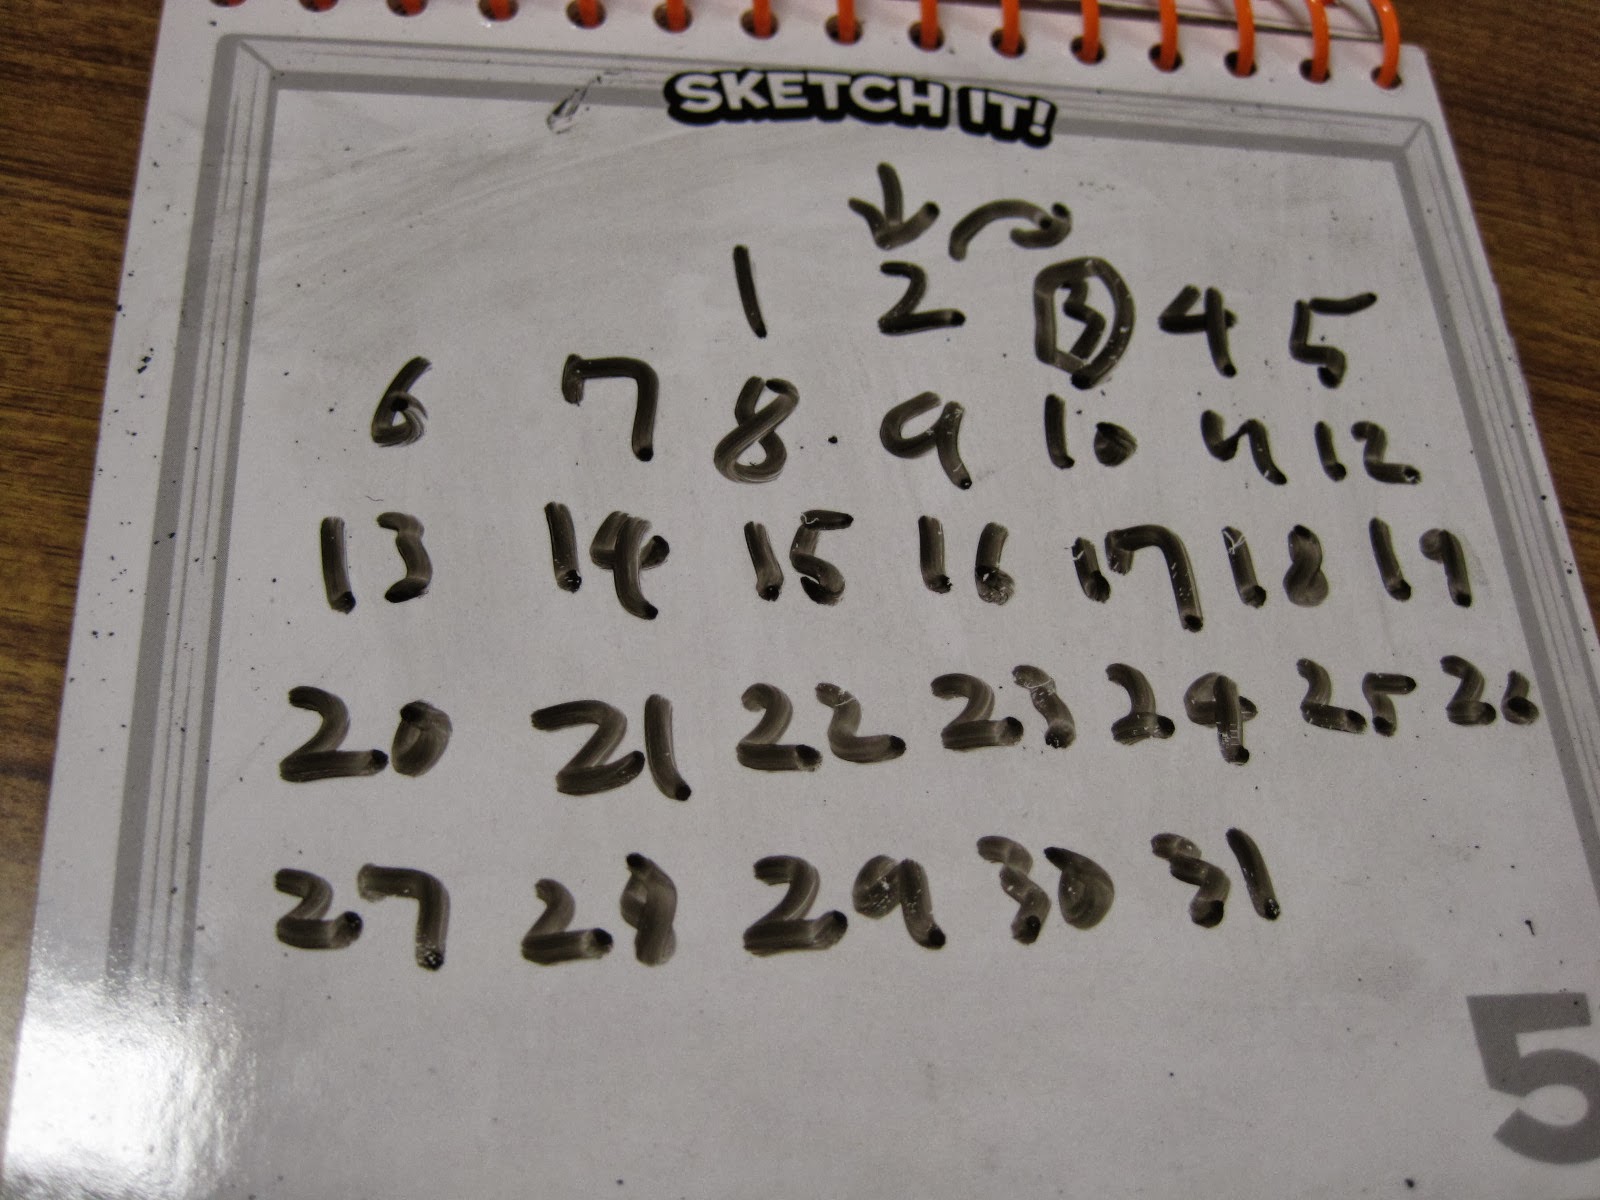 SKETCH IT!
1 2 3 4 5
6 7 8 9 10 11 12
13 14 15 16 17 18 19
20 21 22 23 24 25 26
27 28 29 30 31
5